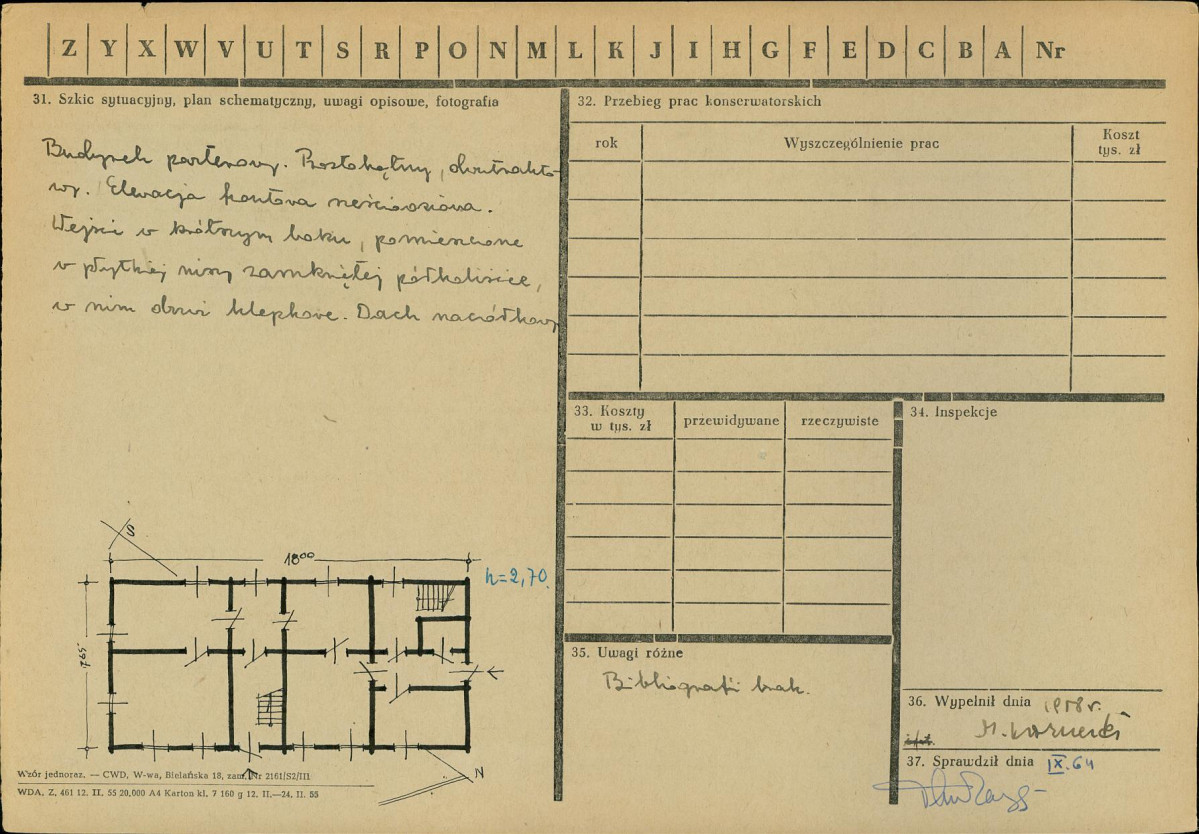 Z Y X W V U T S R P O N M L K J I H G F E D C B A Nr
31. Szkic sytuacyjny, plan schematyczny, uwagi opisowe, fotografia
Budynek parterowy. Prostokątny, dwutrakto-
wy. Elewacja frontowa sześcioosiowa.
Wejście w krótszym boku, pomieszczone
w płytkiej niszy zamkniętej półkoliście,
w nim drzwi klepkowe. Dach naczółkowy
S
18⁰⁰
h=2,70.
765
N
Wzór jednoraz. — CWD, W-wa, Bielańska 18, zam. Nr 2161/S2/III
WDA. Z. 461 12. II. 55 20.000 A4 Karton kl. 7 160 g 12. II.—24. II. 55
32. Przebieg prac konserwatorskich
rok
Wyszczególnienie prac
Koszt
tys. zł
33. Koszty
w tys. zł
przewidywane
rzeczywiste
34. Inspekcje
35. Uwagi różne
Bibliografii brak.
36. Wypełnił dnia 1958 r.
M. Kornecki
37. Sprawdził dnia IX.64